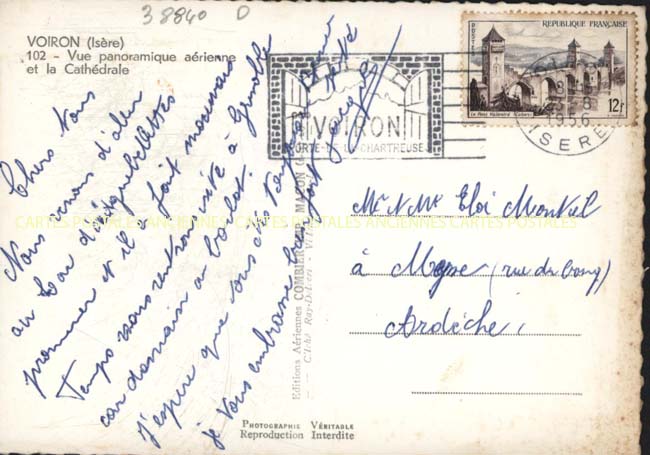 38840 D
VOIRON (Isère)
102 - Vue panoramique aérienne
et la Cathédrale
Chers Vous
Nous venons d'aller
au Lac d'Aiguebelettes
promener et il a fait mauvais
Temps nous rentrons vite à Grenoble
car demain au boulot.
J'espère que vous
je vous embrasse bien fort
Editions Aériennes COMBIER IMP. MACON
PHOTOGRAPHIE VÉRITABLE
Reproduction Interdite
VOIRON
PORTE-DE-LA-CHARTREUSE
REPUBLIQUE FRANÇAISE
POSTES
Le Pont Valentré (Cahors)
12F
1956
ISERE
Mr et Mme Eloi Montiel
à Meysse (rue du bourg)
Ardèche
CARTES POSTALES ANCIENNES CARTES POSTALES ANCIENNES CARTES POSTALES ANCIENNES